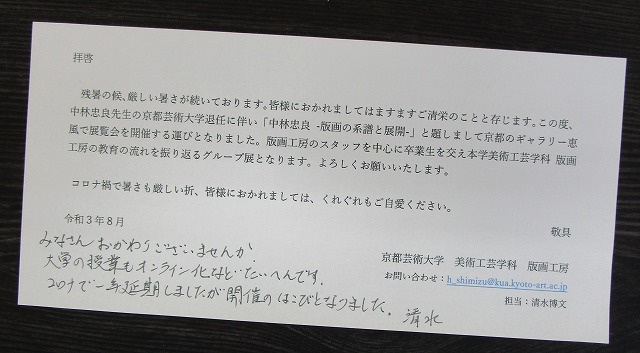 拝啓
残暑の候、厳しい暑さが続いております。皆様におかれましてはますますご清栄のことと存じます。この度、
中林忠良先生の京都芸術大学退任に伴い「中林忠良 -版画の系譜と展開-」と題しまして京都のギャラリー恵
風で展覧会を開催する運びとなりました。版画工房のスタッフを中心に卒業生を交え本学美術工芸学科 版画
工房の教育の流れを振り返るグループ展となります。よろしくお願いいたします。
コロナ禍で暑さも厳しい折、皆様におかれましては、くれぐれもご自愛ください。
敬具
令和３年８月
京都芸術大学 美術工芸学科 版画工房
お問い合わせ：h_shimizu@kua.kyoto-art.ac.jp
担当：清水博文
みなさんおかわりございませんか.
大学の授業もオンライン化などたいへんです.
コロナで一年延期しましたが開催のはこびとなりました. 清水